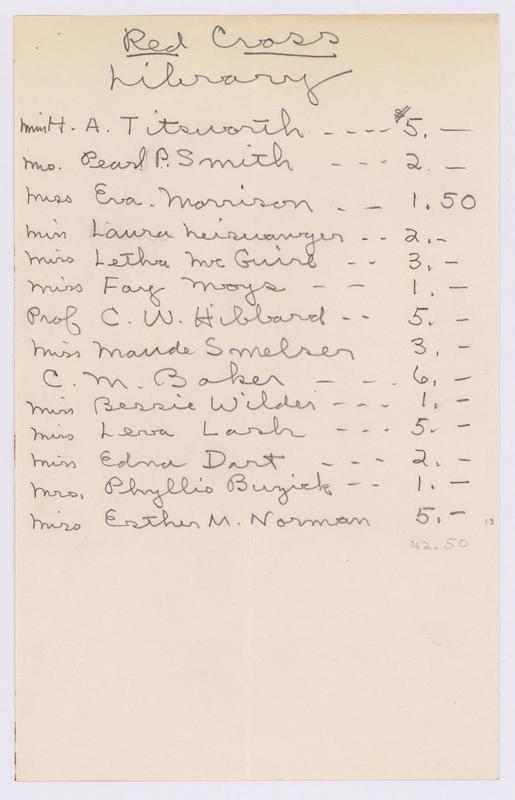 Red Cross
Library
Miss H. A. Titsworth ---- $5. —
Mrs. Pearl P. Smith --- 2 —
Miss Eva. Morrison -- 1.50
Miss Laura Neiswanger -- 2. -
Miss Letha McGuire -- 3. -
Miss Fay Moys -- 1. —
Prof C. W. Hibbard -- 5. —
Miss Maude Smelser 3. —
C. M. Baker ---- 6. —
Miss Bessie Wilder --- 1. —
Miss Leva Lash --- 5. —
Miss Edna Dart --- 2. —
Mrs. Phyllis Buzick -- 1. —
Miss Esther M. Norman 5. — 13
42.50